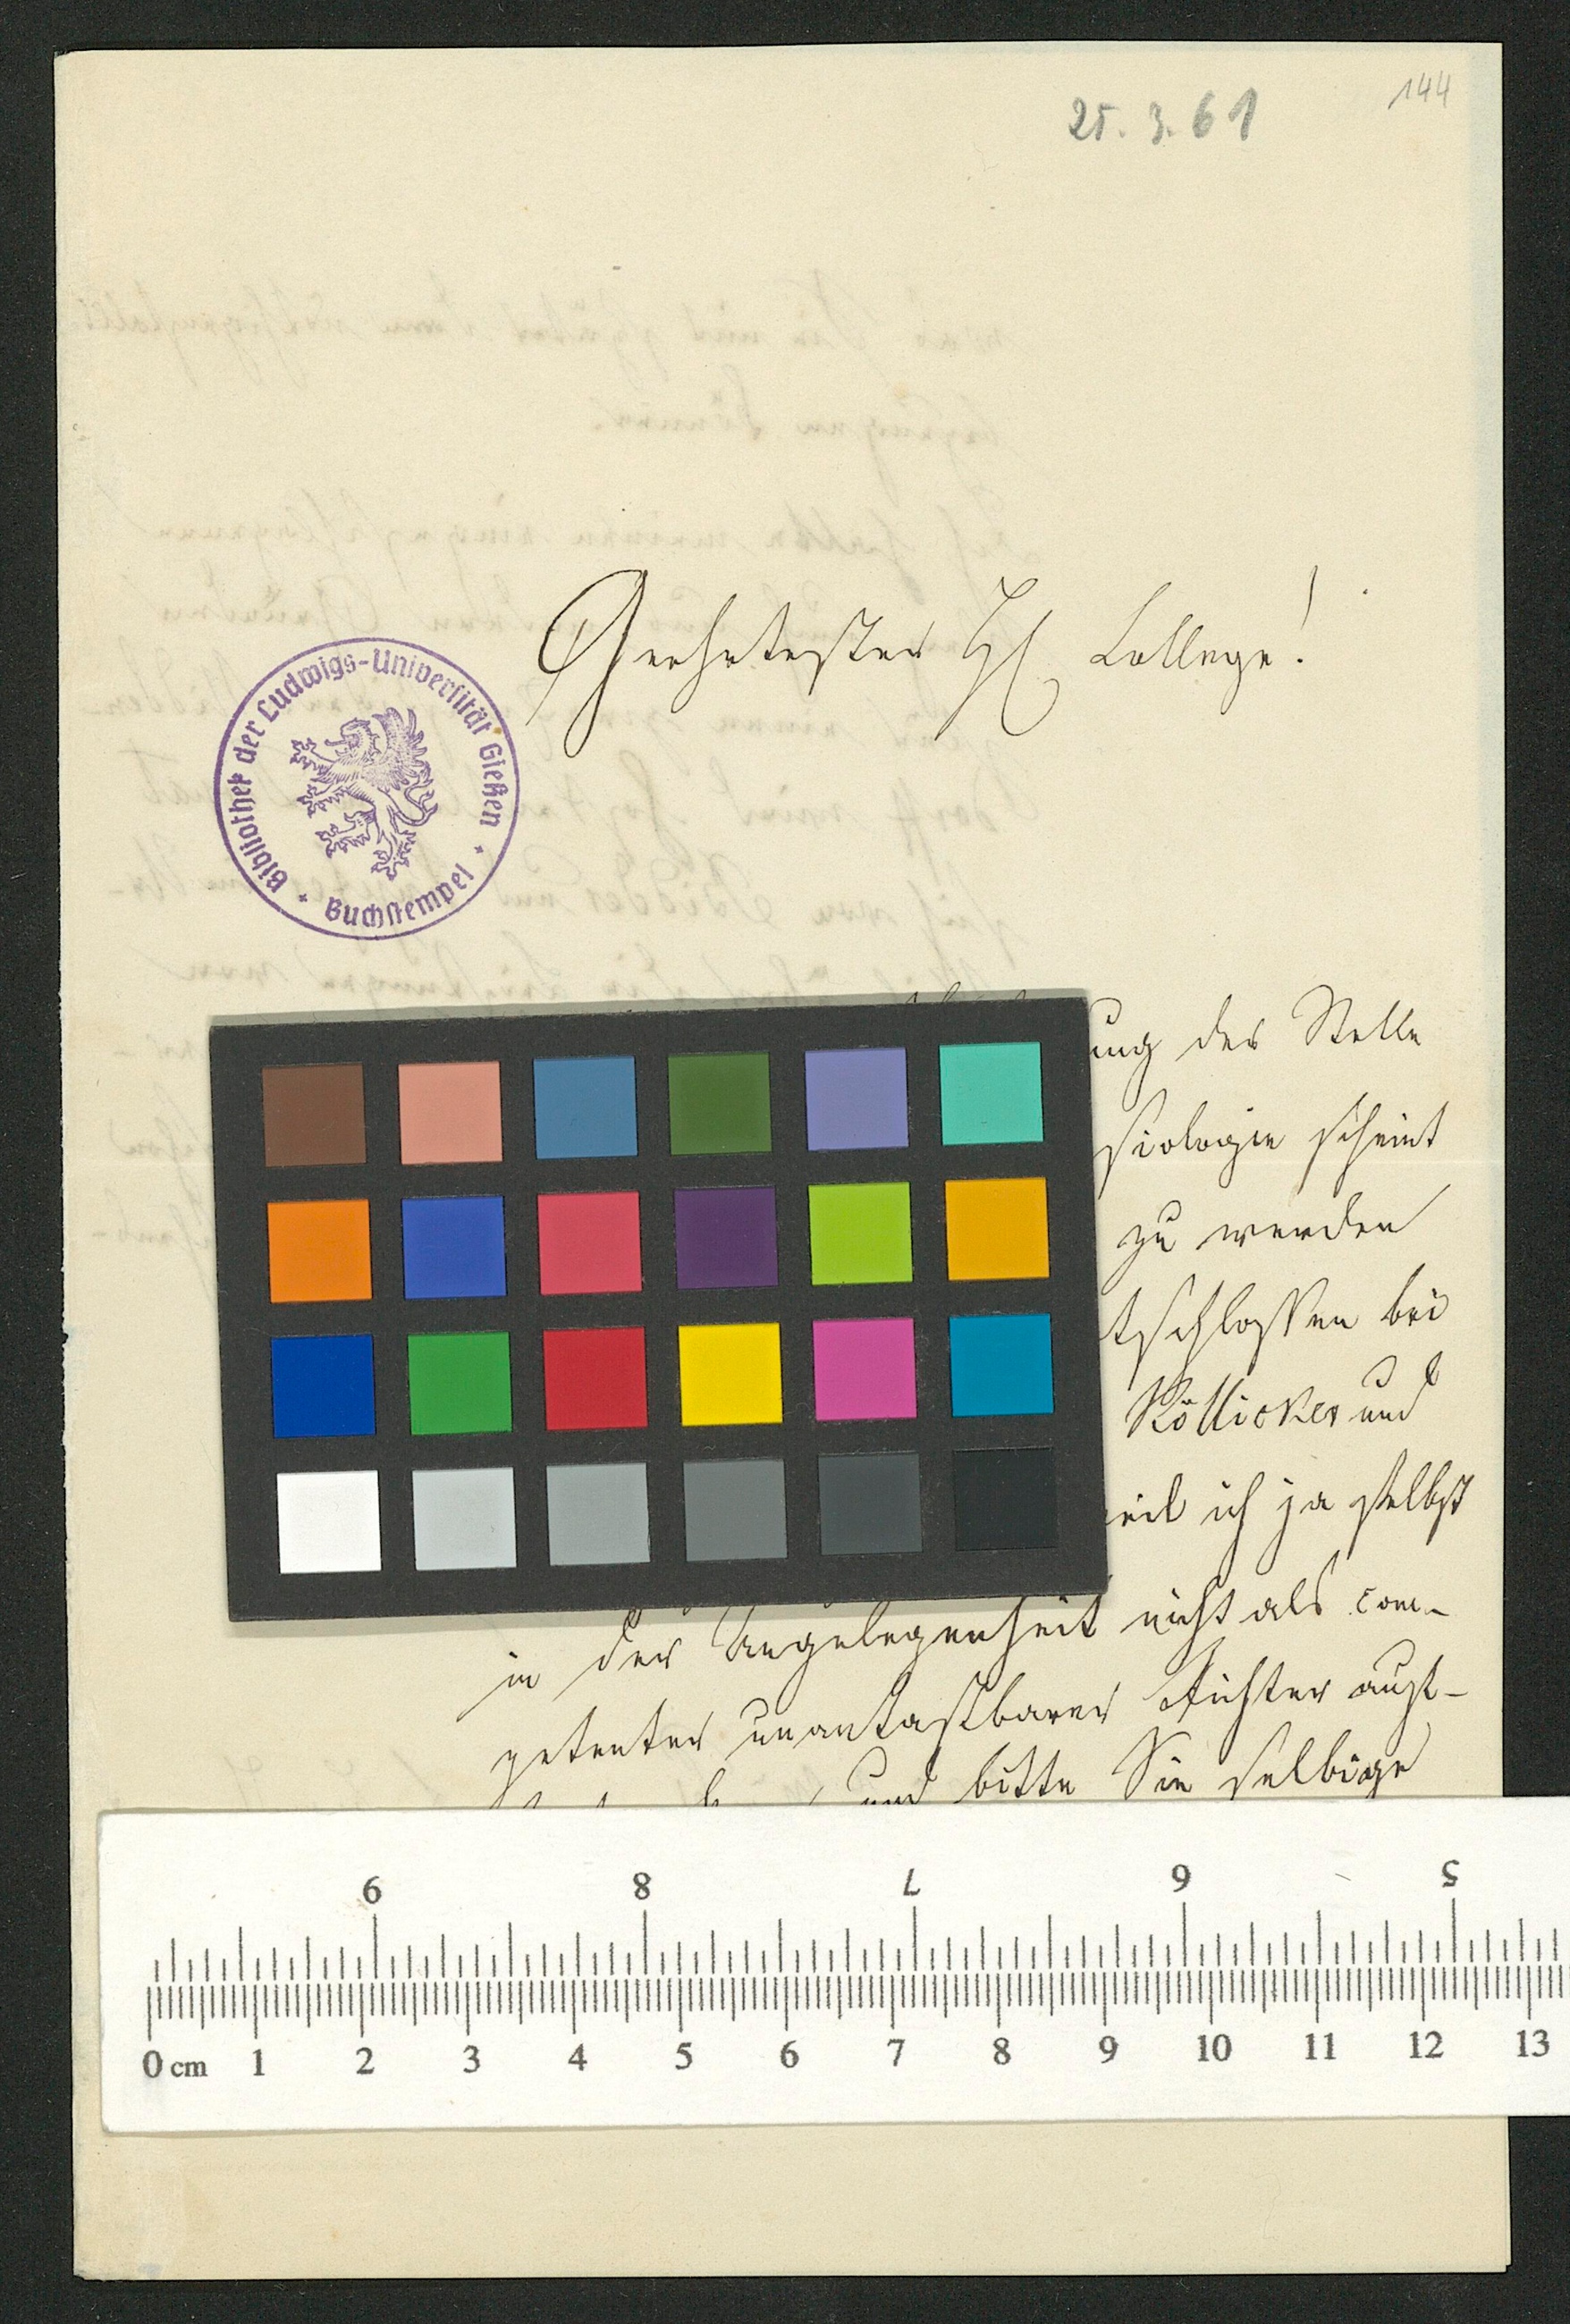 144
25. 3. 61
Geehrtester H. College!
Bibliothek der Ludwigs-Universität Gießen
Buchstempel
ung der Stelle
siologie scheint
zu werden
tschlossen bei
Köllicker und
eil ich ja selbst
in der Angelegenheit nicht als com-
petenter unantastbarer Richter auf-
und bitte Sie selbige
9 8 7 6 5
0 cm 1 2 3 4 5 6 7 8 9 10 11 12 13